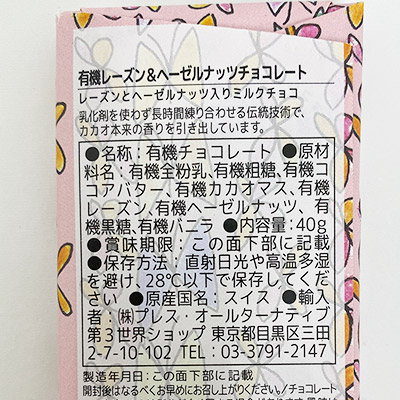 有機レーズン&ヘーゼルナッツチョコレート
レーズンとヘーゼルナッツ入りミルクチョコ
乳化剤を使わず長時間練り合わせる伝統技術で、
カカオ本来の香りを引き出しています。
●名称：有機チョコレート ●原材
料名：有機全粉乳、有機粗糖、有機コ
コアバター、有機カカオマス、有機
レーズン、有機ヘーゼルナッツ、有
機黒糖、有機バニラ ●内容量：40g
●賞味期限：この面下部に記載
●保存方法：直射日光や高温多湿
を避け、28℃以下で保存してくだ
さい ●原産国名：スイス ●輸入
者：㈱プレス・オールターナティブ
第3世界ショップ 東京都目黒区三田
2-7-10-102 TEL：03-3791-2147
製造年月日：この面下部に記載
開封後はなるべくお早めにお召し上がりください。/チョコレート